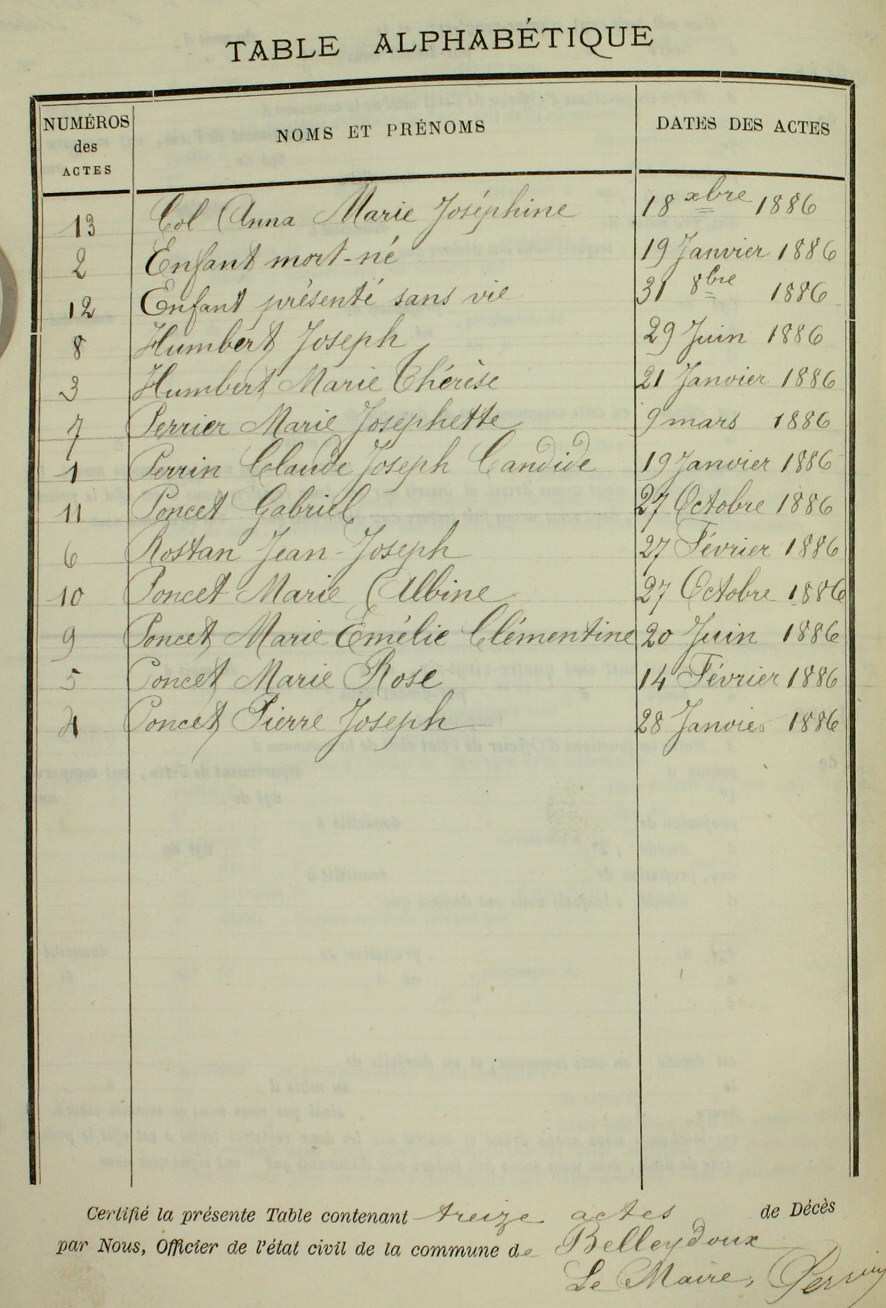 TABLE ALPHABÉTIQUE
NUMÉROS des ACTES NOMS ET PRÉNOMS DATES DES ACTES
13 Col Anna Marie Joséphine 18 xbre 1886
2 Enfant mort-né 19 Janvier 1886
12 Enfant présenté sans vie 31 8bre 1886
8 Humbert Joseph 29 Juin 1886
3 Humbert Marie Thérèse 21 Janvier 1886
7 Perrier Marie Josephette 9 mars 1886
1 Perrin Claude Joseph Candide 19 Janvier 1886
11 Poncet Gabriel 27 Octobre 1886
6 Rostan Jean-Joseph 27 Février 1886
10 Poncet Marie Albine 27 Octobre 1886
9 Poncet Marie Emélie Clémentine 20 Juin 1886
5 Poncet Marie Rose 14 Février 1886
4 Poncet Pierre Joseph 28 Janvier 1886
Certifié la présente Table contenant treize actes de Décès
par Nous, Officier de l'état civil de la commune de Belleydoux
Le Maire, Perrin